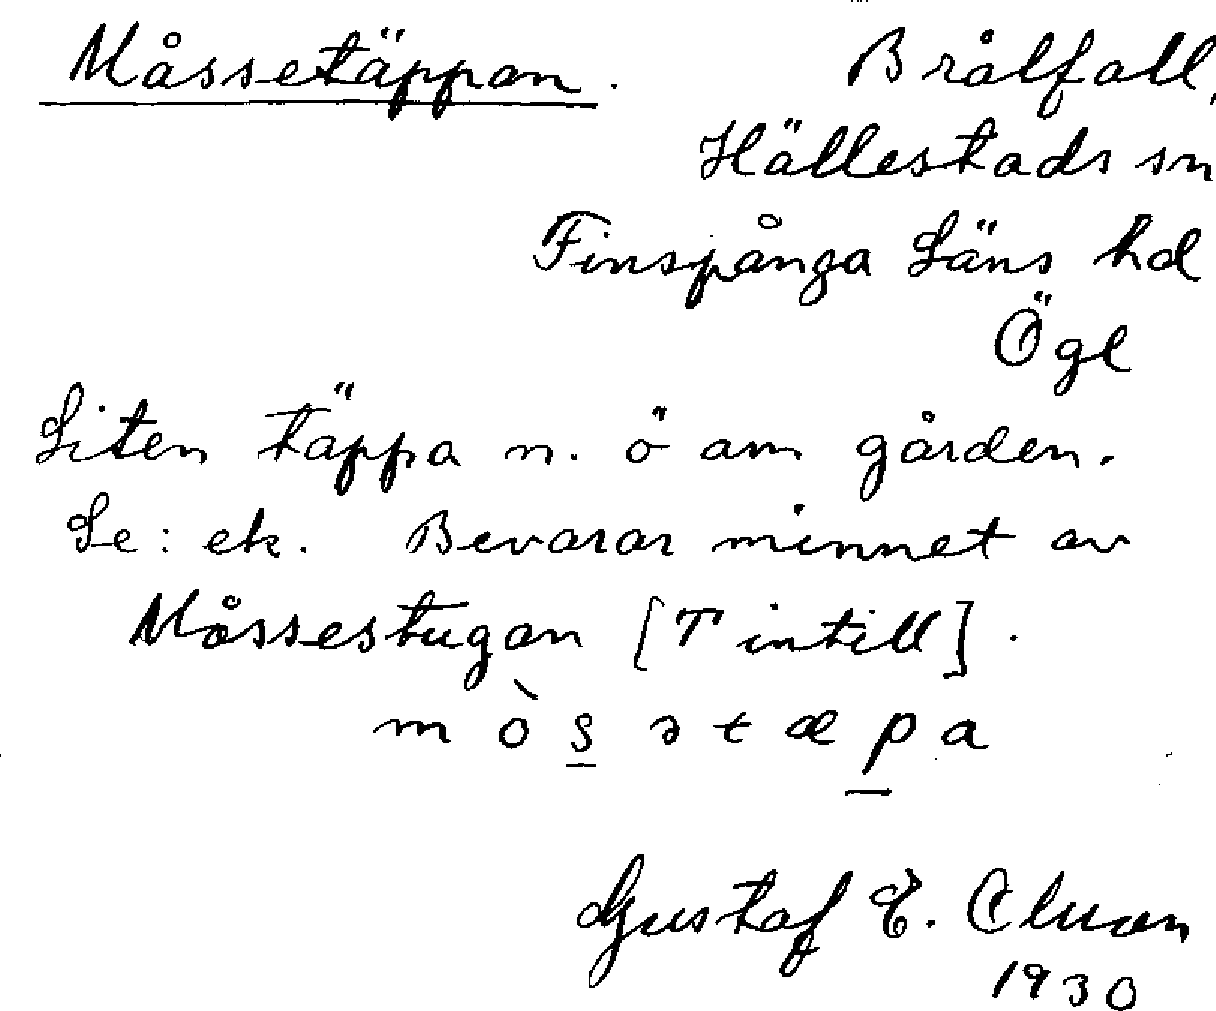 Måssetäppan. Brålfall,
Hällestads sn
Finspånga Läns hd
Ögl
Liten täppa n. ö om gården.
Se: ek. Bevarar minnet av
Måssestugan [T intill].
m ò s ə t æ p a
Gustaf E.
1930